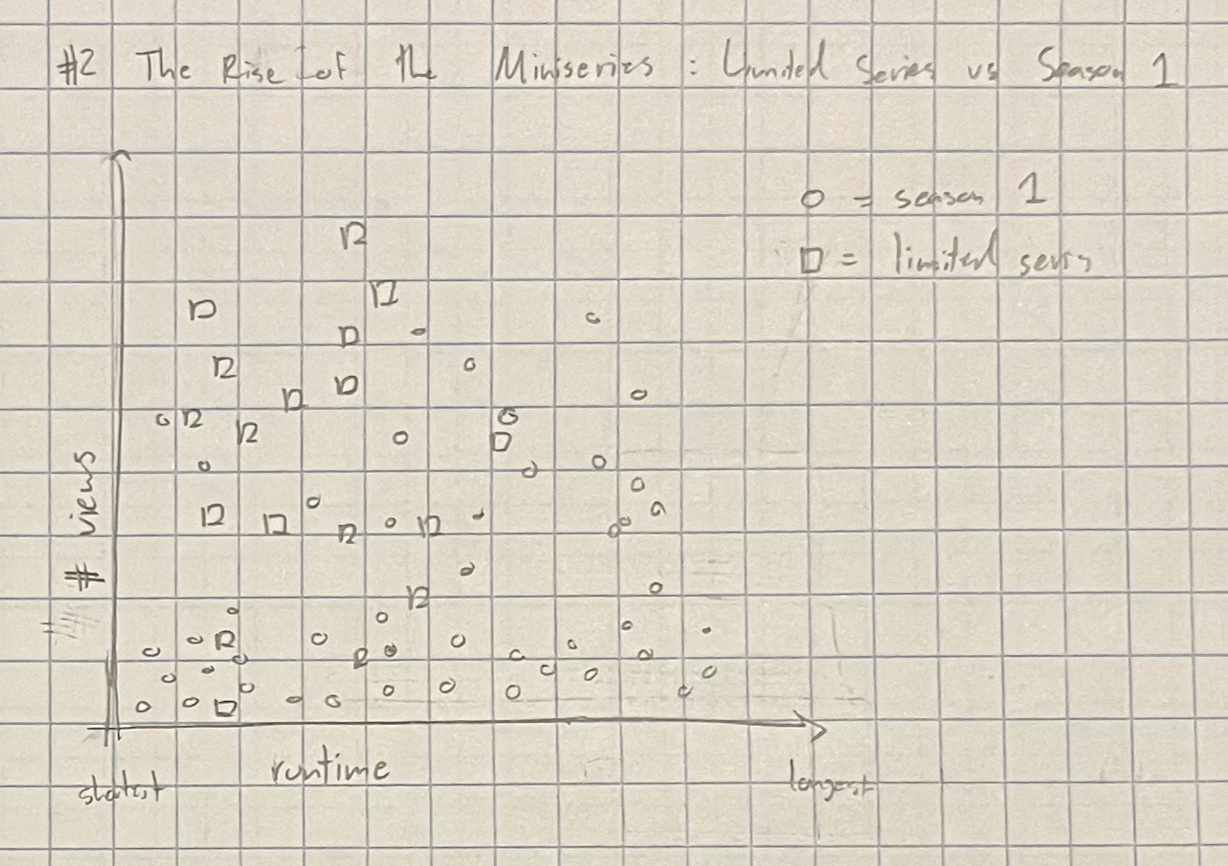 #2 The Rise of the Miniseries : Limited Series vs Season 1
o = season 1
□ = limited series
# views
runtime
shortest
longest